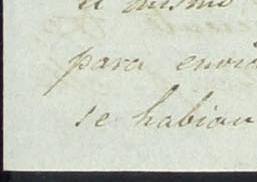 el mismo
para envia
se habian